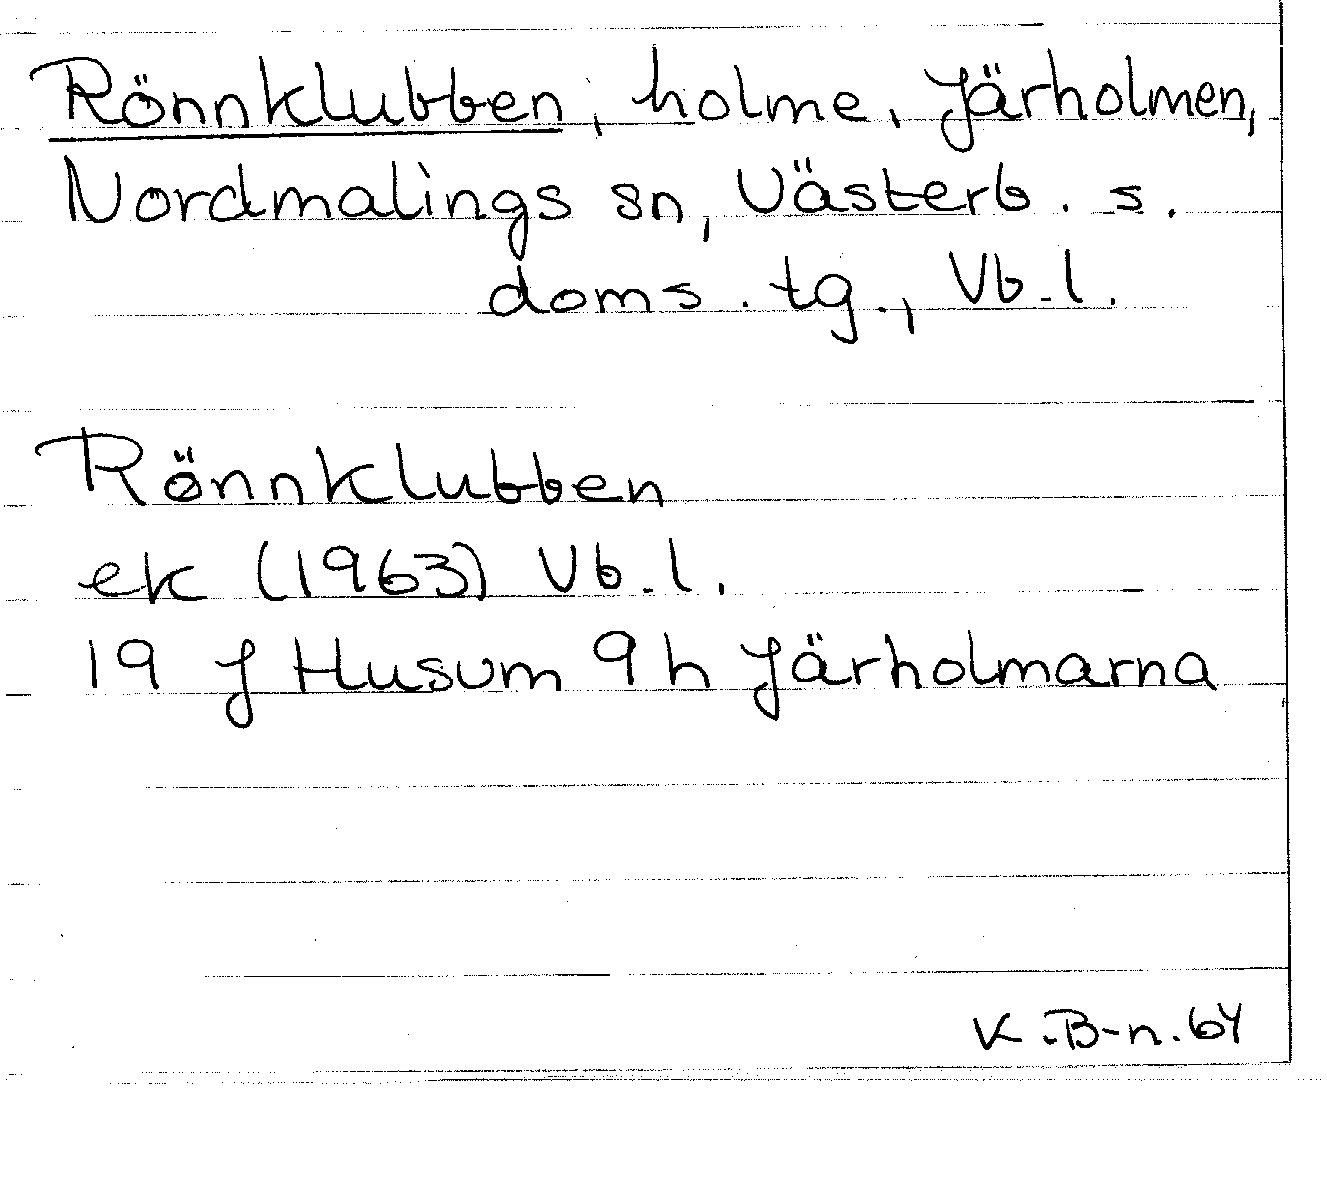 Rönnklubben, holme, Järholmen,
Nordmalings sn, Västerb. s.
doms. tg., Vb. l.
Rönnklubben
ek (1963) Vb. l.
19 J Husum 9h Järholmarna
K.B-n. 64